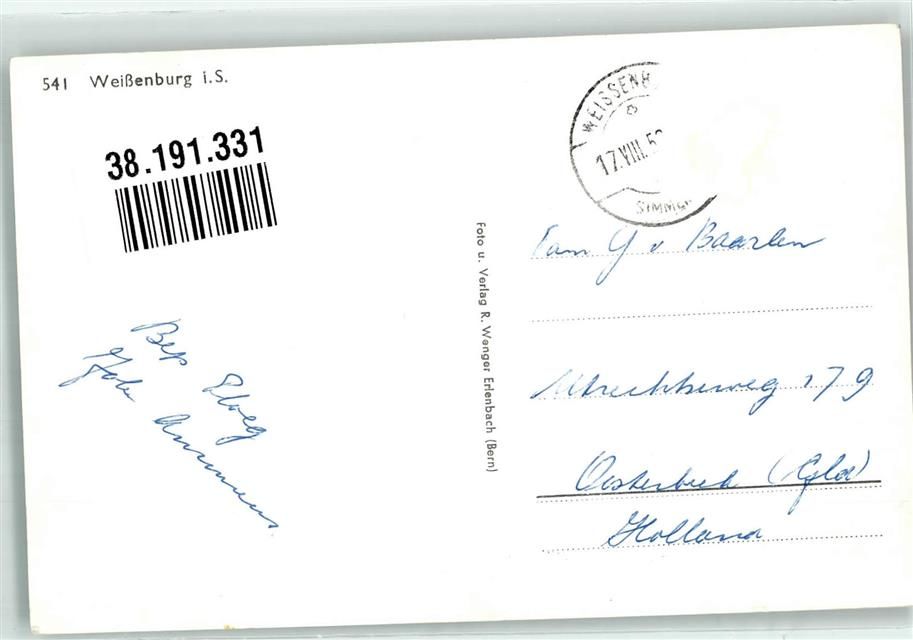 541 Weißenburg i.S.
38.191.331
WEISSENB
17.VIII.5
SIMME
Foto u. Verlag R. Wenger Erlenbach (Bern)
Fam G v Baarlen
Utrechtseweg 179
Oosterbeek (Gld)
Holland
Bep Ploeg